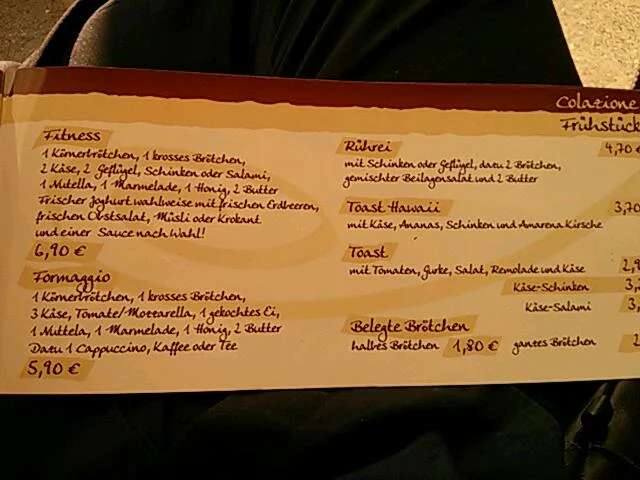 Colazione
Frühstück
Fitness
1 Körnerbrötchen, 1 krosses Brötchen,
2 Käse, 2 Geflügel, Schinken oder Salami,
1 Nutella, 1 Marmelade, 1 Honig, 2 Butter
Frischer Joghurt wahlweise mit frischen Erdbeeren,
frischen Obstsalat, Müsli oder Krokant
und einer Sauce nach Wahl!
6,90 €
Formaggio
1 Körnerbrötchen, 1 krosses Brötchen,
3 Käse, Tomate/Mozzarella, 1 gekochtes Ei,
1 Nuttela, 1 Marmelade, 1 Honig, 2 Butter
Dazu 1 Cappuccino, Kaffee oder Tee
5,90 €
Rührei 4,70 €
mit Schinken oder Geflügel, dazu 2 Brötchen,
gemischter Beilagensalat und 2 Butter
Toast Hawaii 3,70
mit Käse, Ananas, Schinken und Amarena Kirsche
Toast
mit Tomaten, Gurke, Salat, Remolade und Käse 2,9
Käse-Schinken 3,
Käse-Salami 3,
Belegte Brötchen
halbes Brötchen 1,80 € ganzes Brötchen 2